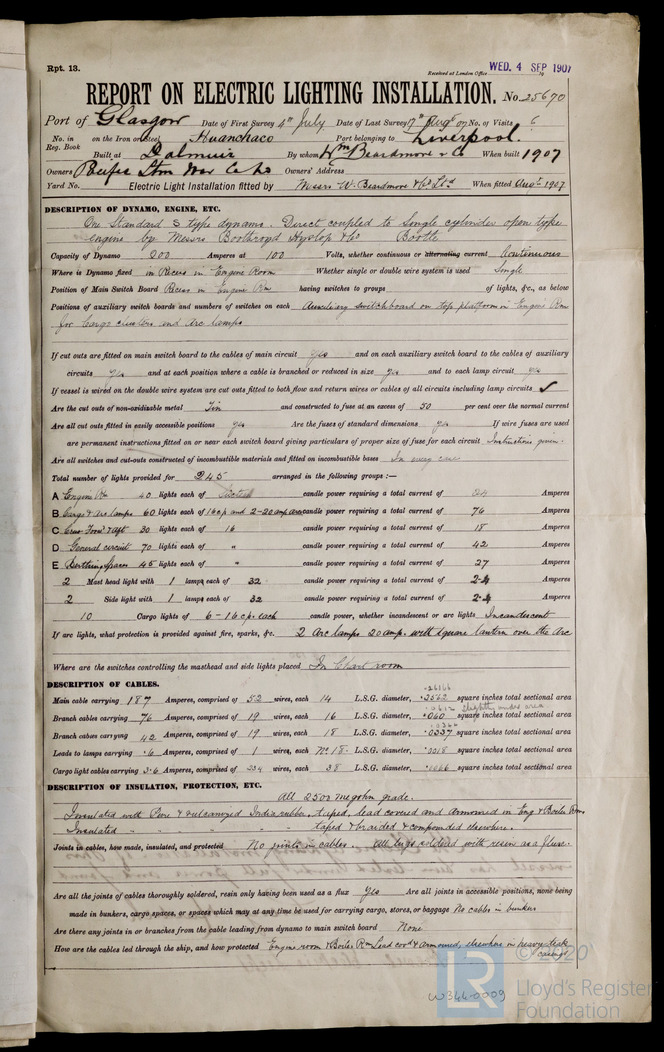 Rpt. 13.
Received at London Office
WED. 4 SEP 1907
REPORT ON ELECTRIC LIGHTING INSTALLATION. No. 25670
Port of Glasgow Date of First Survey 4th July Date of Last Survey 17th Augt 07 No. of Visits 6
No. in Reg. Book on the Iron or Steel Huanchaco Port belonging to Liverpool
Built at Dalmuir By whom Wm Beardmore & Co When built 1907
Owners Pacific Stm Nav Co Ld Owners' Address
Yard No. Electric Light Installation fitted by Messrs W. Beardmore & Co Ltd When fitted Augt 1907
DESCRIPTION OF DYNAMO, ENGINE, ETC.
One Standard S type dynamo. Direct coupled to Single cylinder open type
engine by Messrs Boothroyd Hyslop & Co Bootle
Capacity of Dynamo 200 Amperes at 100 Volts, whether continuous or alternating current Continuous
Where is Dynamo fixed in Recess in Engine Room Whether single or double wire system is used Single
Position of Main Switch Board Recess in Engine Rm having switches to groups of lights, &c., as below
Positions of auxiliary switch boards and numbers of switches on each Auxiliary switchboard on top platform in Engine Rm
for Cargo clusters and Arc lamps
If cut outs are fitted on main switch board to the cables of main circuit yes and on each auxiliary switch board to the cables of auxiliary
circuits yes and at each position where a cable is branched or reduced in size yes and to each lamp circuit yes
If vessel is wired on the double wire system are cut outs fitted to both flow and return wires or cables of all circuits including lamp circuits ✓
Are the cut outs of non-oxidizable metal Tin and constructed to fuse at an excess of 50 per cent over the normal current
Are all cut outs fitted in easily accessible positions yes Are the fuses of standard dimensions yes If wire fuses are used
are permanent instructions fitted on or near each switch board giving particulars of proper size of fuse for each circuit Instructions given.
Are all switches and cut-outs constructed of incombustible materials and fitted on incombustible bases In every case
Total number of lights provided for 245 arranged in the following groups :—
A Engine Rm 40 lights each of candle power requiring a total current of 24 Amperes
B Cargo & Arc lamps 60 lights each of 16cp and 2-20 amp arc candle power requiring a total current of 76 Amperes
C Crew Forwd & Aft 30 lights each of 16 candle power requiring a total current of 18 Amperes
D General circuit 70 lights each of " candle power requiring a total current of 42 Amperes
E Berthing Spaces 45 lights each of " candle power requiring a total current of 27 Amperes
2 Mast head light with 1 lamps each of 32 candle power requiring a total current of 2.4 Amperes
2 Side light with 1 lamps each of 32 candle power requiring a total current of 2.4 Amperes
10 Cargo lights of 6 - 16 cp. each candle power, whether incandescent or arc lights Incandescent
If arc lights, what protection is provided against fire, sparks, &c. 2 Arc lamps 20 amp. with square lantern over the Arc
Where are the switches controlling the masthead and side lights placed In Chart room
DESCRIPTION OF CABLES.
Main cable carrying 187 Amperes, comprised of 52 wires, each 14 L.S.G. diameter, square inches total sectional area
Branch cables carrying 76 Amperes, comprised of 19 wires, each 16 L.S.G. diameter, .060 square inches total sectional area
Branch cables carrying 42 Amperes, comprised of 19 wires, each 18 L.S.G. diameter, .0337 square inches total sectional area
Leads to lamps carrying .6 Amperes, comprised of 1 wires, each No 18 L.S.G. diameter, .0018 square inches total sectional area
Cargo light cables carrying 3.6 Amperes, comprised of wires, each 38 L.S.G. diameter, .0066 square inches total sectional area
DESCRIPTION OF INSULATION, PROTECTION, ETC.
All 2500 megohm grade.
Insulated with Pure & vulcanized India rubber, taped, lead covered and Armoured in Eng & Boiler Rms
Insulated " " " " taped & braided & compounded elsewhere.
Joints in cables, how made, insulated, and protected No joints in cables. All lugs soldered with resin as a flux.
Are all the joints of cables thoroughly soldered, resin only having been used as a flux Yes Are all joints in accessible positions, none being
made in bunkers, cargo spaces, or spaces which may at any time be used for carrying cargo, stores, or baggage No cables in bunkers
Are there any joints in or branches from the cable leading from dynamo to main switch board None
How are the cables led through the ship, and how protected Engine room & Boiler Rm Lead covd & armoured, elsewhere in heavy teak
casings
© 2020
Lloyd's Register
Foundation
LR
W344-0009